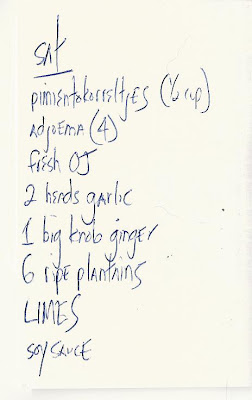 sat
pimientokorreltjes (½ cup)
ADJUEMA (4)
fresh OJ
2 heads garlic
1 big knob ginger
6 ripe plantains
LIMES
SOY SAUCE